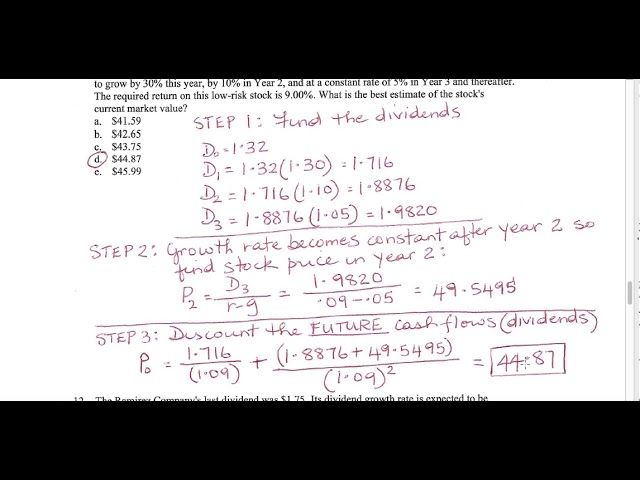 to grow by 30% this year, by 10% in Year 2, and at a constant rate of 5% in Year 3 and thereafter.
The required return on this low-risk stock is 9.00%. What is the best estimate of the stock's
current market value?
a. $41.59
b. $42.65
c. $43.75
d. $44.87
e. $45.99
STEP 1: Find the dividends
D₀ = 1.32
D₁ = 1.32(1.30) = 1.716
D₂ = 1.716(1.10) = 1.8876
D₃ = 1.8876(1.05) = 1.9820
STEP 2: Growth rate becomes constant after year 2 so
find stock price in year 2:
P₂ = D₃ / r-g = 1.9820 / .09-.05 = 49.5495
STEP 3: Discount the FUTURE cashflows (dividends)
P₀ = 1.716 / (1.09) + (1.8876 + 49.5495) / (1.09)² = 44.87
12. The Ramirez Company's last dividend was $1.75. Its dividend growth rate is expected to be